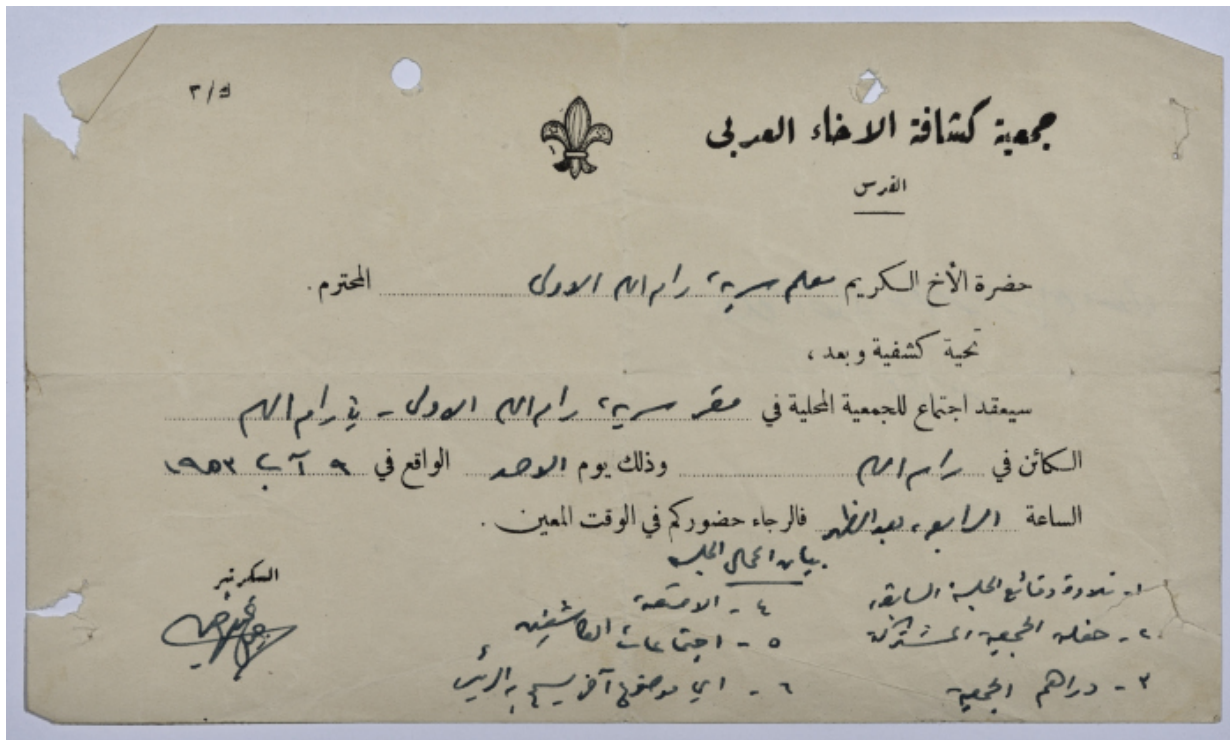 ك/٣
جمعية كشافة الاخاء العربي
القدس
حضرة الأخ الكريم معلم سرية رام الله الاولى المحترم .
تحية كشفية وبعد ،
سيعقد اجتماع للجمعية المحلية في مقر سرية رام الله الاولى - في رام الله
الكائن في رام الله وذلك يوم الاحد الواقع في ٩ آب ١٩٥٣
الساعة الرابعة بعد الظهر فالرجاء حضوركم في الوقت المعين .
بيان اعمال الجلسة
١- تلاوة وقائع الجلسة السابقة
٢- حفلة الجمعية المشتركة
٣- دراهم الجمعية
٤- الامتعة
٥- اجتماعات الكاشفين
٦- اي موضوع آخر يسمح به الرئيس
السكرتير